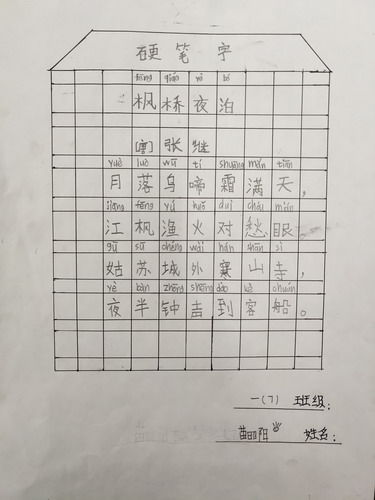 硬笔字
fēng qiáo yè bó
枫桥夜泊
[唐]张继
yuè luò wū tí shuāng mǎn tiān
月落乌啼霜满天,
jiāng fēng yú huǒ duì chóu mián
江枫渔火对愁眠
gū sū chéng wài hán shān sì
姑苏城外寒山寺,
yè bàn zhōng shēng dào kè chuán
夜半钟吉到客船。
一(7) 班级:
苗 阳 姓名: